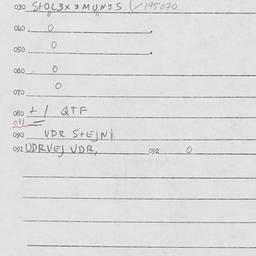 030 StOL3X2MUN2S (✓195070
040 0
050 0
060 0
070 0
080 +1 QTF
081
090 VDR StEJNJ
091 UDRVEJ VDR, 092 0